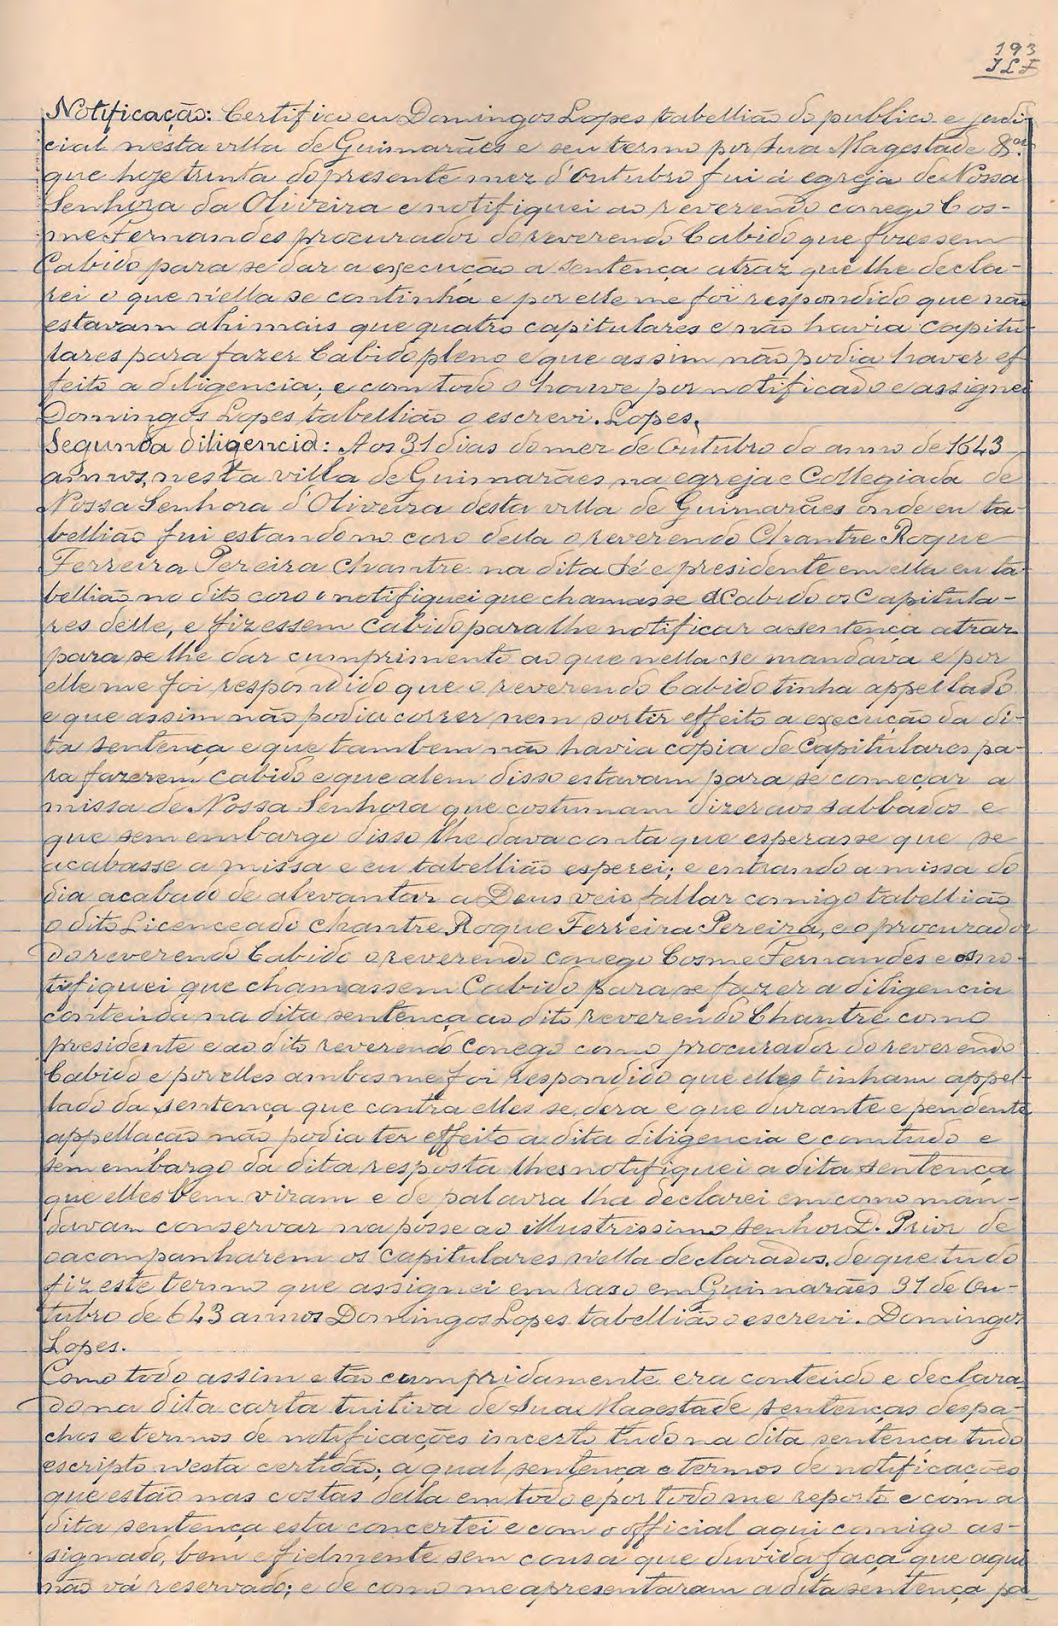 193
Notificação: Certifico eu Domingos Lopes tabellião do publico e judi-
cial nesta villa de Guimarães e seu termo por Sua Magestade &ª.
que hoje trinta do presente mez d'outubro fui á egreja de Nossa
Senhora da Oliveira e notifiquei ao reverendo conego Cos-
me Fernandes procurador do reverendo Cabido que fizessem
Cabido para se dar a execução a sentença atraz que lhe decla-
rei o que n'ella se continha e por elle me foi respondido que não
estavam ahi mais que quatro capitulares e não havia capitu-
lares para fazer Cabido pleno e que assim não podia haver ef-
feito a diligencia; e com todo o houve por notificado e assignei
Domingos Lopes tabellião o escrevi. Lopes.
Segunda diligencia: Aos 31 dias do mez de Outubro do anno de 1643
annos, nesta villa de Guimarães na egreja e Collegiada de
Nossa Senhora d'Oliveira desta villa de Guimarães onde eu ta-
bellião fui estando no coro della o reverendo Chantre Roque
Ferreira Pereira chantre na dita Sé e presidente em ella eu ta-
bellião no dito coro o notifiquei que chamasse a Cabido os Capitula-
res delle, e fizessem Cabido para lhe notificar a sentença atraz
para se lhe dar cumprimento ao que nella se mandava e por
elle me foi respondido que o reverendo Cabido tinha appellado
e que assim não podia correr nem sortir effeito a execução da di-
ta sentença e que tambem não havia copia de Capitulares pa-
ra fazerem Cabido e que alem disso estavam para se começar a
missa de Nossa Senhora que costumam dizer aos sabbados e
que sem embargo disso lhe dava conta que esperasse que se
acabasse a missa e eu tabellião esperei; e entrando a missa do
dia acabado de alevantar a Deus veio fallar comigo tabellião
o dito Licenceado chantre Roque Ferreira Pereira, e o procurador
do reverendo Cabido o reverendo conego Cosme Fernandes e os no-
tifiquei que chamassem Cabido para se fazer a diligencia
conteúda na dita sentença ao dito reverendo Chantre como
presidente e ao dito reverendo Conego como procurador do reverendo
Cabido e por elles ambos me foi respondido que elles tinham appel-
lado da sentença que contra elles se dera e que durante e pendente
appellação não podia ter effeito a dita diligencia e comtudo e
sem embargo da dita resposta lhes notifiquei a dita sentença
que elles bem viram e de palavra lha declarei em como man-
davam conservar na posse ao illustrissimo senhor D. Prior de
o acompanharem os capitulares n'ella declarados, de que tudo
fiz este termo que assignei em raso em Guimarães 31 de Ou-
tubro de 643 annos Domingos Lopes tabellião o escrevi. Domingos
Lopes.
Como todo assim e tão cumpridamente era conteúdo e declara-
do na dita carta tuitiva de Sua Magestade sentenças despa-
chos e termos de notificações incerto tudo na dita sentença tudo
escripto n'esta certidão; a qual sentença e termos de notificações
que estão nas costas della em todo e por todo me reporto e com a
dita sentença esta concertei e com o official aqui comigo as-
signado, bem e fielmente sem cousa que duvida faça que aqui
não vá reservado; e de como me apresentaram a dita sentença pa-